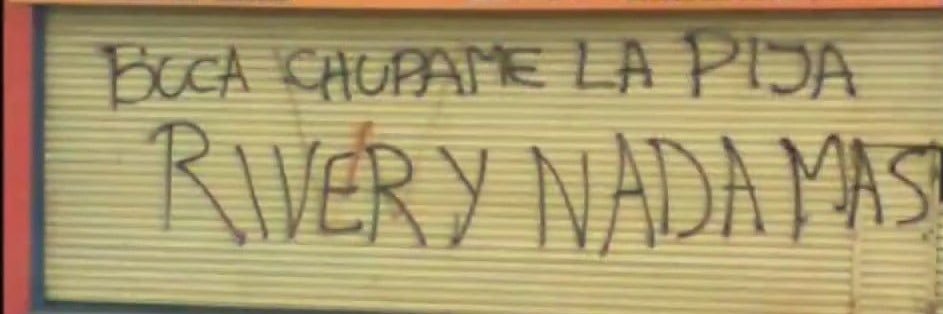 BOCA CHUPAME LA PIJA
RIVER Y NADA MAS